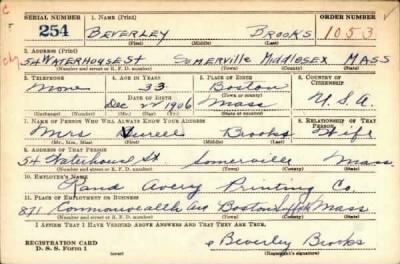 SERIAL NUMBER 1. NAME (Print) ORDER NUMBER
254 BEVERLEY BROOKS 1053
(First) (Middle) (Last)
2. ADDRESS (Print)
54 WATERHOUSE St SOMERVILLE MIDDLESEX MASS
(Number and street or R. F. D. number) (Town) (County) (State)
3. TELEPHONE 4. AGE IN YEARS 5. PLACE OF BIRTH 6. COUNTRY OF CITIZENSHIP
None 33 Boston
DATE OF BIRTH (Town or county)
Dec 1906 Mass U.S.A.
(Exchange) (Number) (Mo.) (Day) (Yr.) (State or country)
7. NAME OF PERSON WHO WILL ALWAYS KNOW YOUR ADDRESS 8. RELATIONSHIP OF THAT PERSON
Mrs Brooks Wife
(Mr., Mrs., Miss) (First) (Middle) (Last)
9. ADDRESS OF THAT PERSON
54 Waterhouse St Somerville Mass
(Number and street or R. F. D. number) (Town) (County) (State)
10. EMPLOYER'S NAME
Rand Avery Printing Co.
11. PLACE OF EMPLOYMENT OR BUSINESS
871 Commonwealth Ave Boston Suffolk Mass
(Number and street or R. F. D. number) (Town) (County) (State)
I AFFIRM THAT I HAVE VERIFIED ABOVE ANSWERS AND THAT THEY ARE TRUE.
REGISTRATION CARD
D. S. S. Form 1
(over)
Beverley Brooks